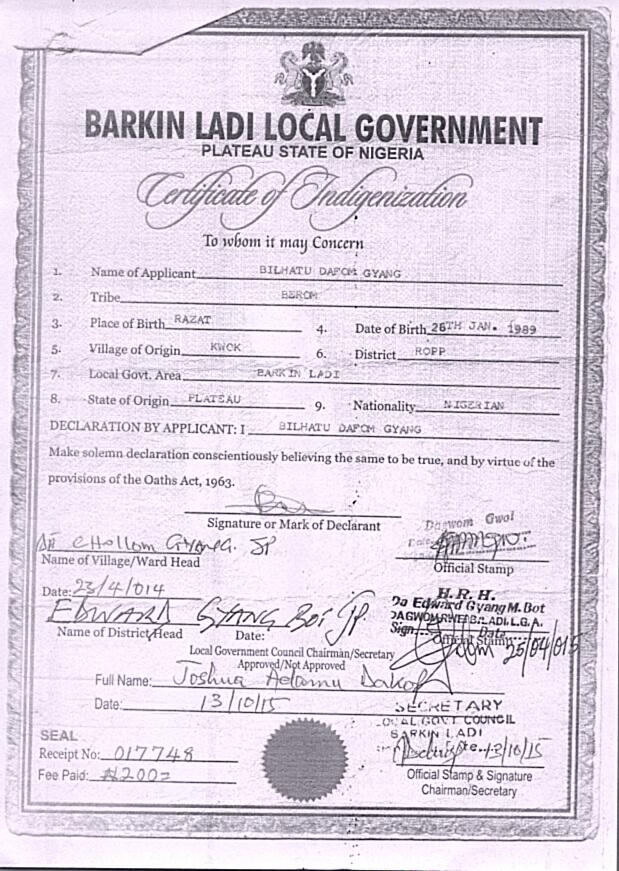 BARKIN LADI LOCAL GOVERNMENT
PLATEAU STATE OF NIGERIA
Certificate of Indigenization
To whom it may Concern
1. Name of Applicant BILHATU DAFOM GYANG
2. Tribe BEROM
3. Place of Birth RAZAT 4. Date of Birth 26TH JAN. 1989
5. Village of Origin KWOK 6. District ROPP
7. Local Govt. Area BARKIN LADI
8. State of Origin PLATEAU 9. Nationality NIGERIAN
DECLARATION BY APPLICANT: I BILHATU DAFOM GYANG
Make solemn declaration conscientiously believing the same to be true, and by virtue of the
provisions of the Oaths Act, 1963.
Signature or Mark of Declarant
Dagwom Gwol
Chollom Gyang. JP
Name of Village/Ward Head
Official Stamp
Date: 23/4/014
H. R. H.
Da Edward Gyang M. Bot
DAGWOM RWEI B/LADI L.G.A.
Sign Date
EDWARD GYANG BOT JP
Official Stamp 25/04/015
Name of District Head Date:
Local Government Council Chairman/Secretary
Approved/Not Approved
Full Name: Joshua Adamu
Date: 13/10/15
SECRETARY
LOCAL GOVT COUNCIL
BARKIN LADI
13/10/15
SEAL
Receipt No: 017748
Fee Paid: ₦200=
Official Stamp & Signature
Chairman/Secretary